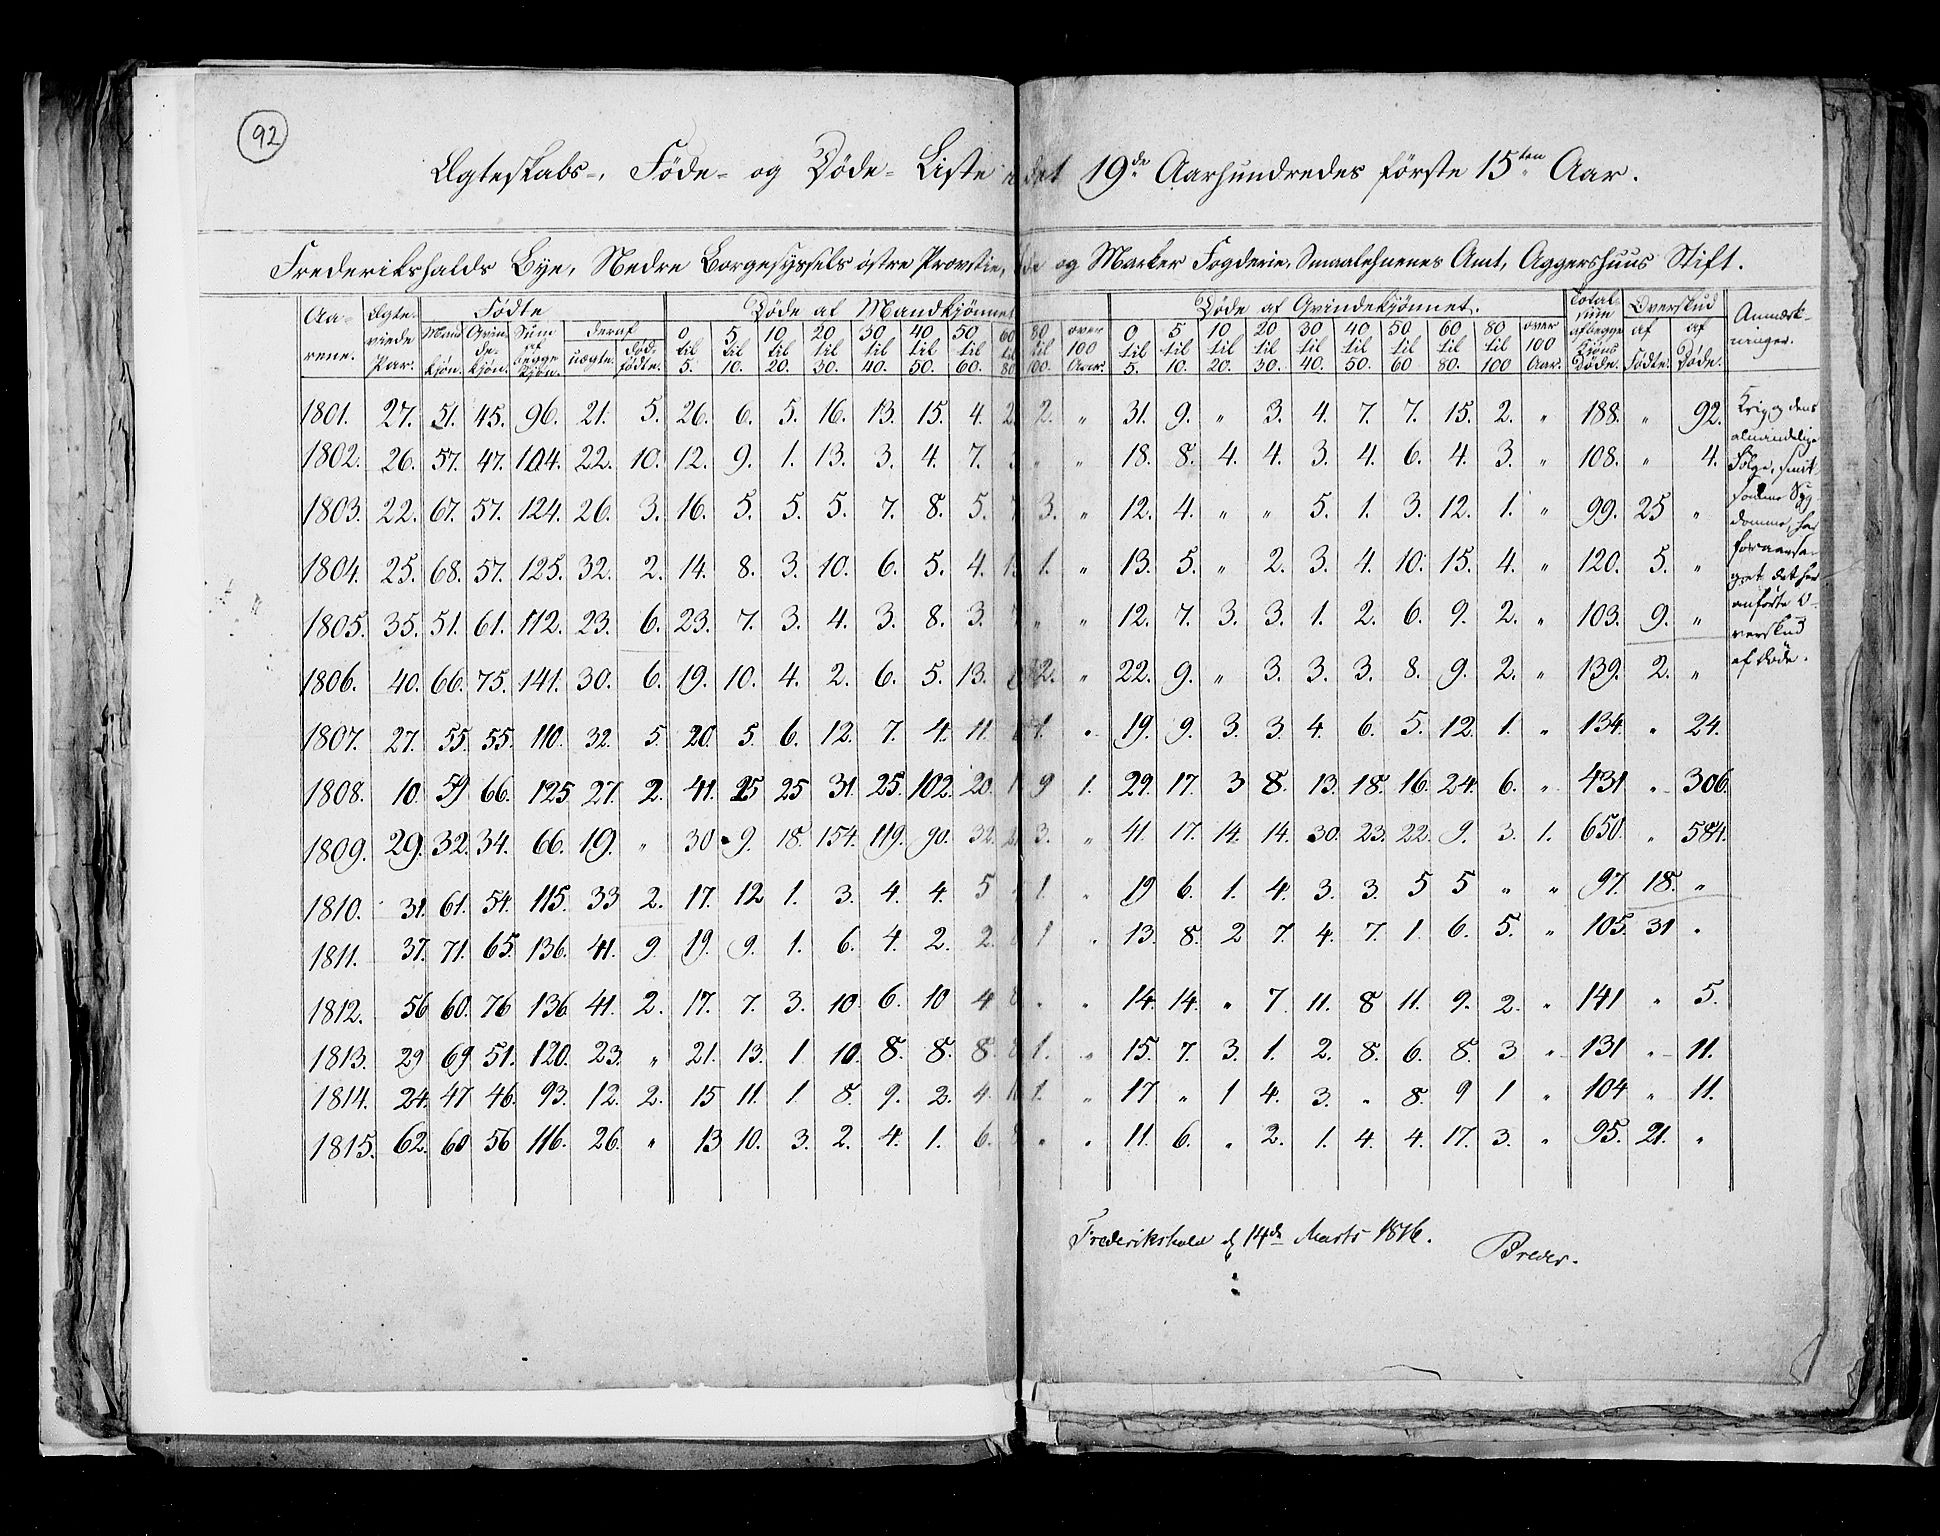 92
Ægteskabs-, Føde- og Døde- Liste i det 19de Aarhundredes første 15ten Aar.
Frederikshalds Bye, Nedre Borgesyssels østre Provstie, og Marker Fogderie, Smaalehnenes Amt, Aggershuus Stift.
Aarene. Ægteviede Par. Fødte Døde af Mandkjønnet Døde af Qvindekjønnet. Total Sum af begge Kjøns Døde. Overskud Anmærkninger.
Mandkjøn. Qvindekjøn. Sum af begge Kjøn. deraf uægte. dødfødte. 0 til 5. 5 til 10. 10 til 20. 20 til 30. 30 til 40. 40 til 50. 50 til 60. 60 til 80 80 til 100. over 100 Aar. 0 til 5. 5 til 10. 10 til 20. 20 til 30. 30 til 40. 40 til 50. 50 til 60 60 til 80. 80 til 100 over 100 Aar. af Fødte. af Døde.
1801. 27. 51. 45. 96. 21. 5. 26. 6. 5. 16. 13. 15. 4. 2. „ 31. 9. „ 3. 4. 7. 7. 15. 2. „ 188. „ 92.
1802. 26. 57. 47. 104. 22. 10. 12. 9. 1. 13. 3. 4. 7. „ „ 18. 8. 4. 4. 3. 4. 6. 4. 3. „ 108. „ 4.
1803. 22. 67. 57. 124. 26. 3. 16. 5. 5. 5. 7. 8. 5. 7 3. „ 12. 4. „ „ 5. 1. 3. 12. 1. „ 99. 25 „
1804. 25. 68. 57. 125. 32. 2. 14. 8. 3. 10. 6. 5. 4. 1. „ 13. 5. „ 2. 3. 4. 10. 15. 4. „ 120. 5. „
1805. 35. 51. 61. 112. 23. 6. 23. 7. 3. 4. 3. 8. 3. 7 „ „ 12. 7. 3. 3. 1. 2. 6. 9. 2. „ 103. 9. „
1806. 40. 66. 75. 141. 30. 6. 19. 10. 4. 2. 6. 5. 13. 2. „ 22. 9. „ 3. 3. 3. 8. 9. 2. „ 139. 2. „
1807. 27. 55. 55. 110. 32. 5. 20. 5. 6. 12. 7. 4. 11. 1. „ 19. 9. 3. 3. 4. 6. 5. 12. 1. „ 134. „ 24.
1808. 10. 59 66. 125 27. 2. 41. 25 25 31. 25. 102. 20. 9 1. 29. 17. 3 8. 13. 18. 16. 24. 6. „ 431 „ 306.
1809. 29. 32. 34. 66. 19. „ 30 9. 18. 154. 119. 90. 32. 3. „ 41. 17. 14. 14. 30. 23. 22. 9. 3. 1. 650. „ 584.
1810. 31. 61. 54. 115. 33 2. 17. 12 1. 3. 4. 4. 5 1. „ 19 6. 1. 4. 3. 3. 5 5 „ „ 97. 18. „
1811. 37. 71. 65. 136. 41. 9. 19. 9. 1. 6. 4. 2. 2. 1 „ 13. 8. 2 7. 4. 7. 1. 6. 5. „ 105. 31 „
1812. 56 60. 76 136 41. 2. 17. 7. 3. 10. 6. 10 4 „ „ 14. 14. „ 7 11. 8 11. 9. 2. „ 141 „ 5.
1813. 29 69 51. 120. 23. „ 21. 13. 1 10. 8. 8. 8. 1. „ 15. 7. 3. 1. 2. 8. 6. 8. 3 „ 131 „ 11.
1814. 24. 47 46. 93. 12. 2. 15 11. 1. 8. 9. 2. 4. 1. „ 17 „ 1 4. 3. „ 8. 9 1 „ 104 „ 11.
1815. 62. 60 56 116. 26. „ 13 10. 3. 2. 4. 1. 6. 8 „ „ 11. 6. „ 2. 1. 4 4. 17. 3. „ 95. 21. „
Krig og dens
almindelige
Følge, smit
somme Syg
domme, har
foraarsa-
get det her
anførte O-
verskud
af Døde.
Frederikshald d 14de Marts 1816.